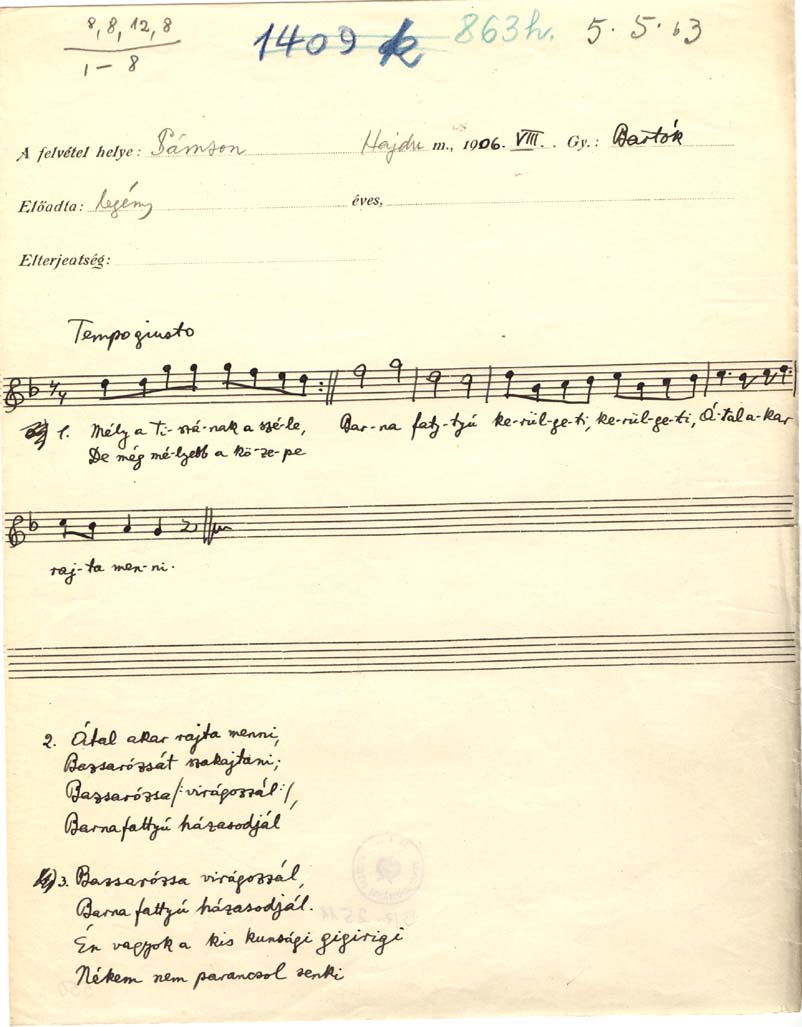 8, 8, 12, 8
1 – 8
1409
863h.
5. 5. 63
A felvétel helye: Pámson Hajdu m., 1906. VIII. Gy.: Bartók
Előadta: legény éves,
Elterjeatség:
Tempo giusto
1. Mély a Ti-szá-nak a szé-le, Bar-na faty-tyú ke-rül-ge-ti, ke-rül-ge-ti, Á-tal a-kar
De még mé-lyebb a kö-ze-pe
raj-ta men-ni.
2. Által akar rajta menni,
Bazsarózsát szakajtani;
Bazsarózsa /: virágozzál :/,
Barna fattyú házasodjál
3. Bazsarózsa virágozzál,
Barna fattyú házasodjál.
Én vagyok a kis kunsági gigirigi
Nékem nem parancsol senki